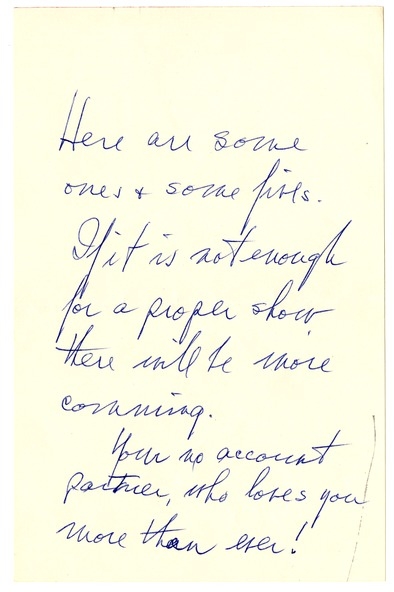 Here are some
ones & some fives.
If it is not enough
for a proper show
there will be more
comming.
Your no account
partner, who loves you
more than ever!